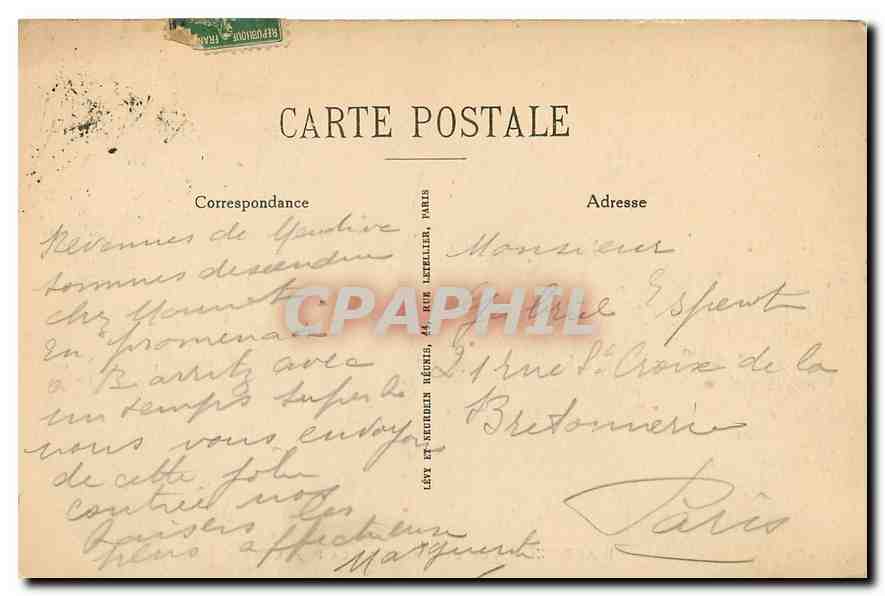 RÉPUBLIQUE FRAN
CARTE POSTALE
Correspondance
Adresse
Revenues de
sommes descendues
chez
En promenade
à Biarritz avec
un temps superbe
nous vous envoyons
de cette jolie
contrée nos
baisers les
plus affectueux
Marguerite
LÉVY ET NEURDEIN RÉUNIS, 44, RUE LETELLIER, PARIS
Monsieur
Gabriel Espent
21 rue St Croix de la
Bretonnerie
Paris
CPAPHIL